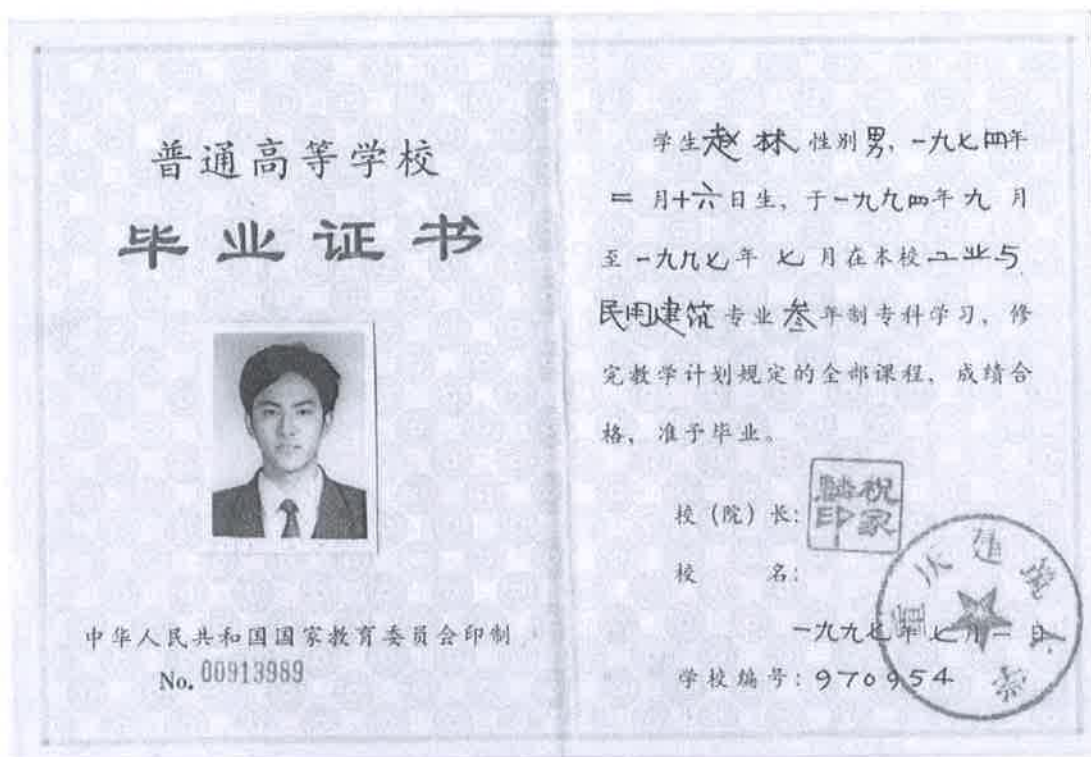 普通高等学校
毕业证书
中华人民共和国国家教育委员会印制
No. 00913989
学生赵林 性别男，一九七四年
二月十六日生，于一九九四年九月
至一九九七年七月在本校工业与
民用建筑专业叁年制专科学习，修
完教学计划规定的全部课程，成绩合
格，准予毕业。
校（院）长：
祝家麟印
校 名：
重庆建筑大学
一九九七年七月一日
学校编号：970954